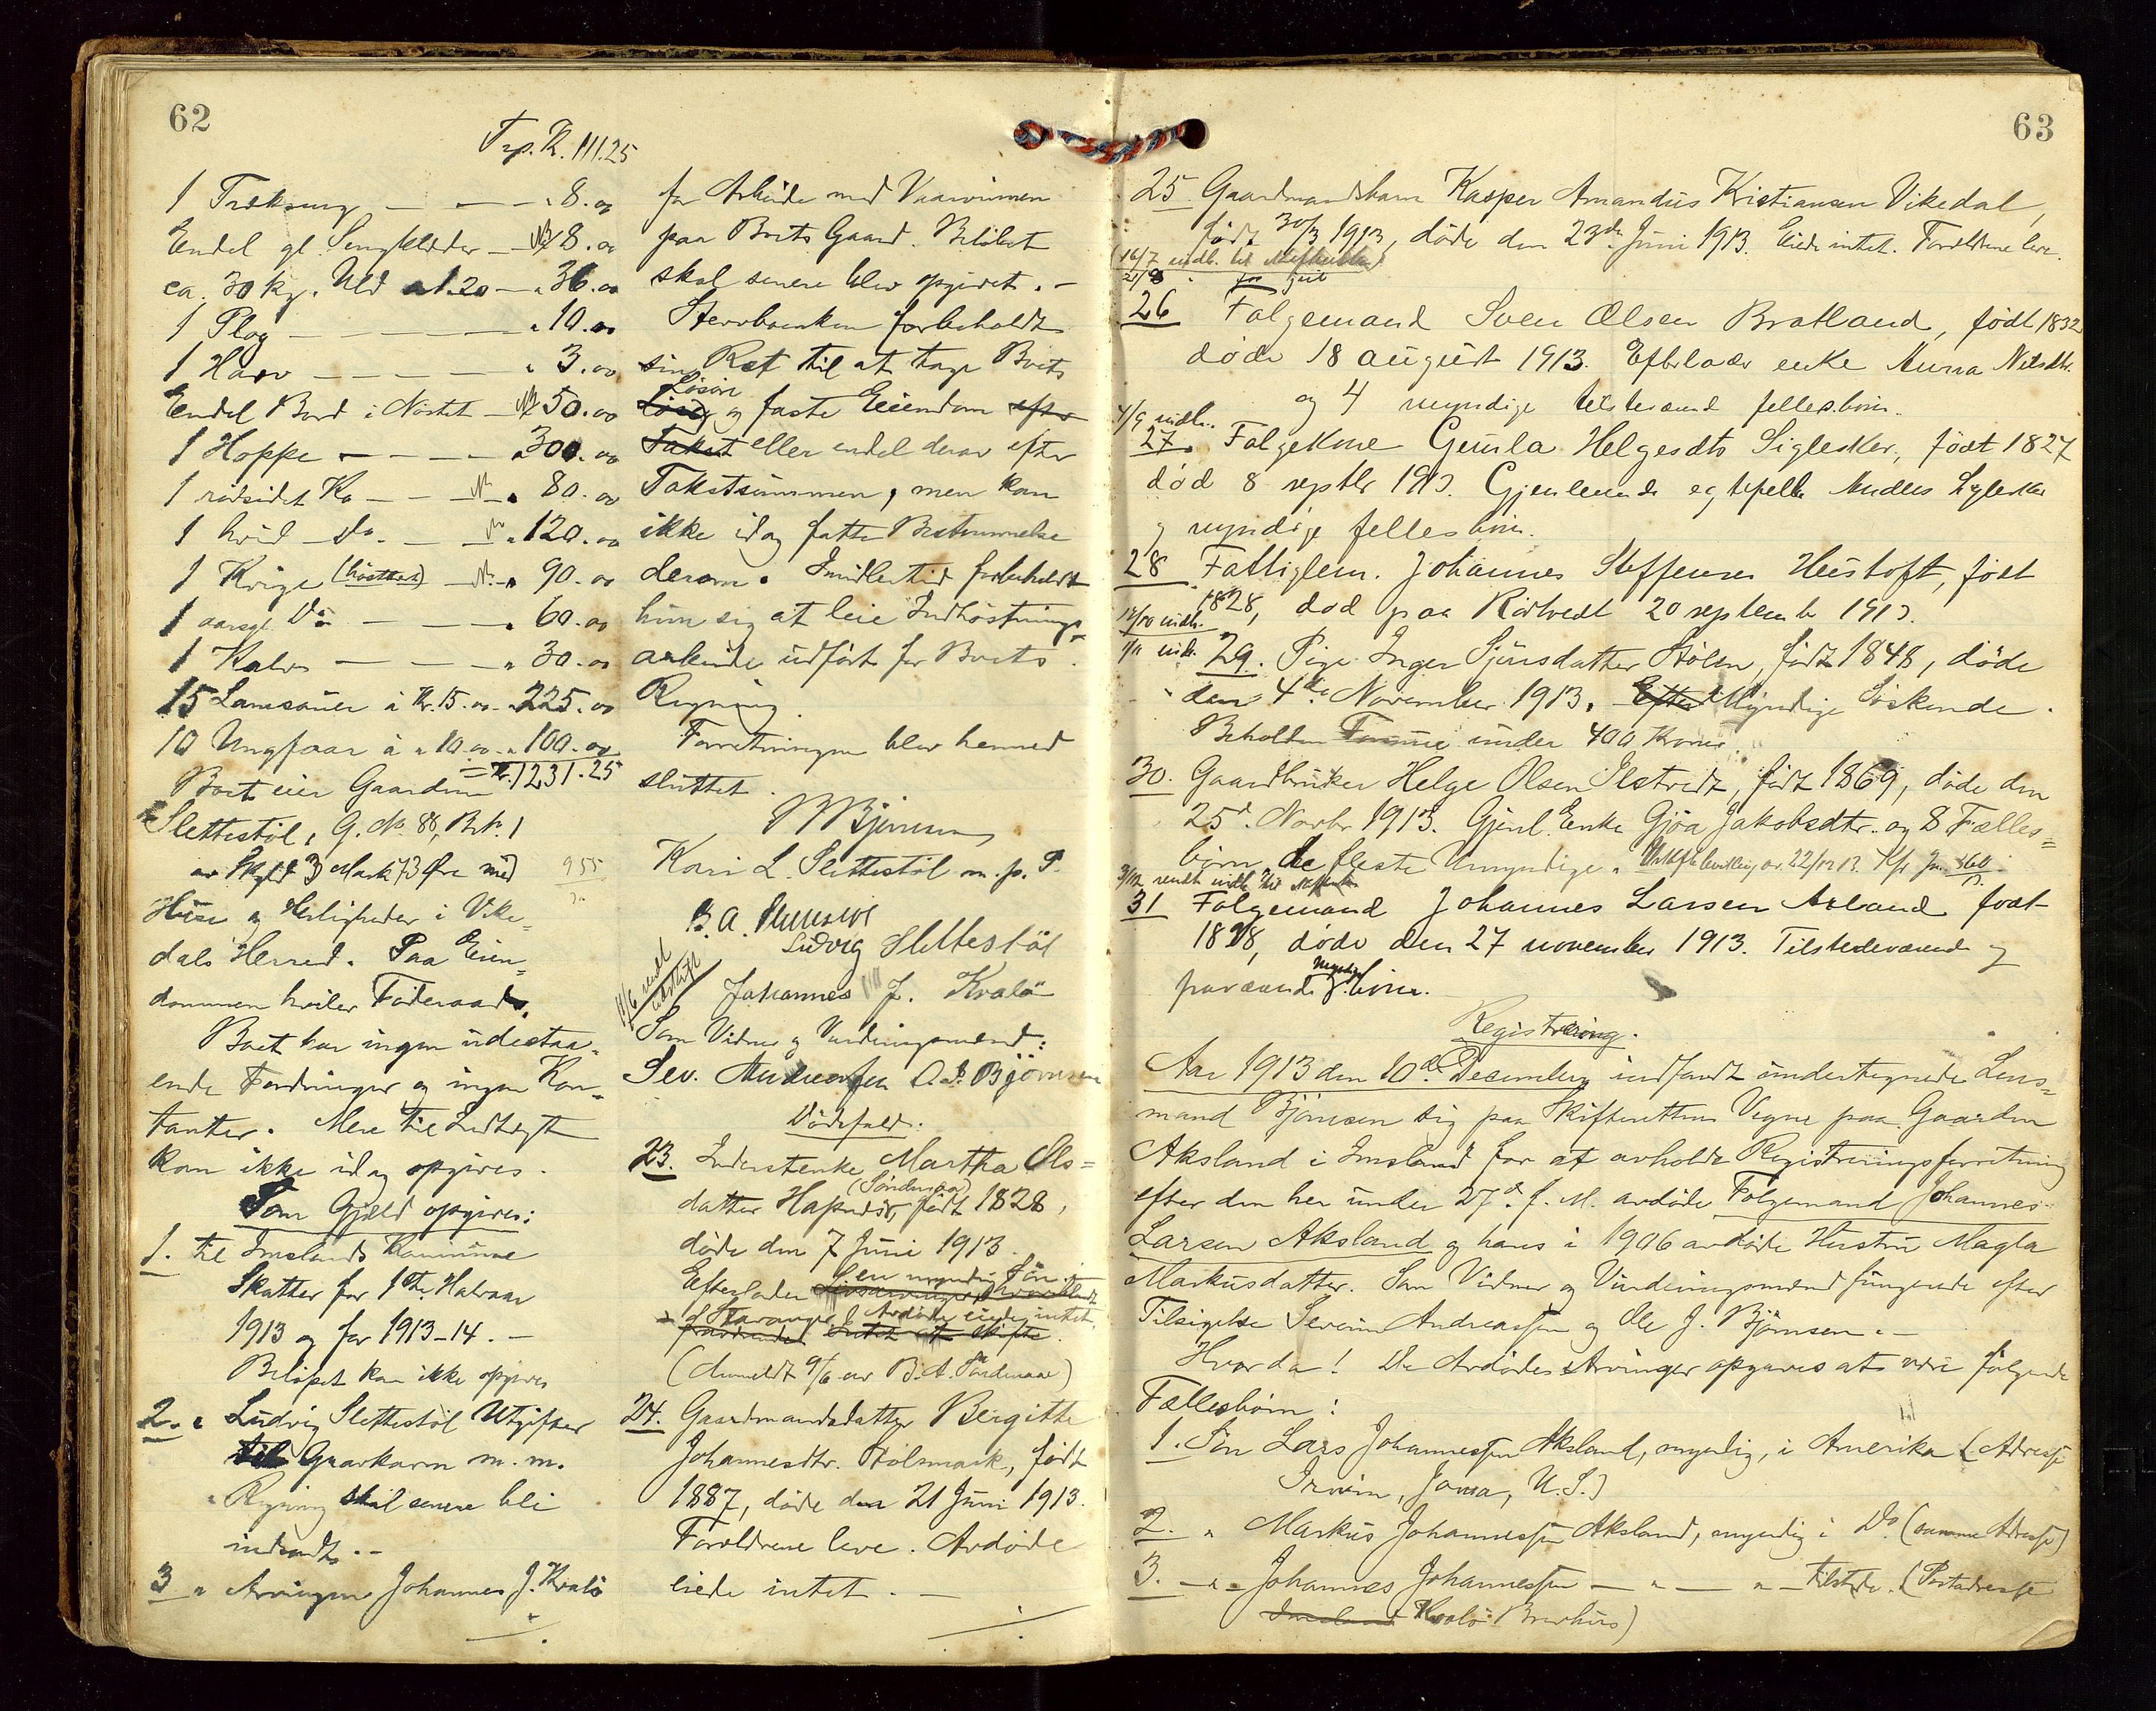 62
Trp. Kr. 111.25
1 Trækserg — — — " 8.00
Endel gl. Sengklæder — " 8.00
ca. 30 kg. Uld a 1.20 — " 36.00
1 Plog — — — " 10.00
1 Harv — — — " 3.00
Endel Bord i Nöstet — " 50.00
1 Hoppe — — — " 300.00
1 rödsidet Ko — — " 80.00
1 hvid Do. — — " 120.00
1 Kvige (hösttid) — " 90.00
1 aarsgl. Do — — — " 60.00
1 Kalv — — — " 30.00
15 Lamsauer à Kr. 15.00 " 225.00
10 Ungfaar à " 10.00 " 100.00
= Kr. 1231.25
Boet eier Gaarden
Slettestöl, G. No. 88, Br.No. 1
av Skyld 3 Mark 73 Öre med
Huse og Herligheder i Vike=
dals Herred. Paa Eien=
dommen hviler Föderaad.
Boet har ingen udestaa=
ende Fordringer og ingen Kon=
tanter. Mere til Indtægt
kan ikke idag opgives.
Som Gjæld opgives:
1. til Imslands Kommune
Skatter for 1ste Halvaar
1913 og for 1913-14. —
Belöpet kan ikke opgives
2. " Ludvig Slettestöl Utgifter
til Gravkarm m. m.
Regning skal senere bli
indsendt. —
3 " Arvingen Johannes J. Kvalö
for Arbeide med Vaarvinnen
paa Boets Gaard. Belöbet
skal senere blive opgivet. —
Stervboenken forbeholdt
sin Ret til at tage Boets
Lösöre og faste Eiendom efter
Takst eller endel derav efter
Takstsummen, men kan
ikke idag fatte Bestemmelse
derom. Imidlertid forbeholdt
hun sig at leie Indhöstnings=
arbeide udfört for Boets
Regning.
Forretningen blev hermed
sluttet.
B Björnsen
Kari L. Slettestöl m. p. P.
Ludvig Slettestöl
Johannes J. Kvalö
Som Vidner og Vurderingsmænd:
Sev. Andreassen O. J. Björnsen
Dödsfald:
23. Inderstenke Martha Ols=
datter Hapnes, född 1828,
döde den 7 Juni 1913.
Efterlader en myndig Sön i
Stavanger. Avdöde eiede intet.
(Anmeldt 9/6 av B. A. Söndenaa)
24. Gaardmandsdatter Bergitte
Johannesdtr. Stölsmark, född
1887, döde den 21 Juni 1913.
Forældrene leve. Avdöde
eiede intet. —
63
25. Gaardmandsbarn Kasper Amandus Kristiansen Vikedal,
född 30/3 1913, döde den 23de Juni 1913. Eiede intet. Forældrene leve.
26 Folgemand Sven Olsen Bratland, född 1832
döde 18 august 1913. Efterlader enke Anna Nilsdtr.
og 4 myndige tilstevrend fellesbörn.
4/9 indb.
27. Folgekone Gunla Helgesdtr Sigleskar, född 1827
död 8 septbr 1913. Gjenlevende egtefelle Anders Sigleskar
og myndige fellesbörn.
28 Fattiglem. Johannes Steffensen Hustoft, född
1828, död paa Rödtvedt 20 september 1913.
29. Pige Inger Sjursdatter Stölen, född 1848, döde
den 4de November 1913. Myndige Söskende.
Beholden Formue under 400 Kroner.
30. Gaardbruker Helge Olsen Ilstvedt, född 1869, döde den
25de Novbr. 1913. Gjenl. Enke Gjöa Jakobsdtr. og 8 Fælles=
börn, de fleste Umyndige.
31 Folgemand Johannes Larsen Axland född
1828, döde den 27 november 1913. Tilstedeværende og
fraværende myndige börn.
Registrering.
Aar 1913 den 10de December indfandt undertegnede Lens=
mand Björnsen sig paa Skifterettens Vegne paa Gaarden
Aksland i Imsland for at avholde Registreringsforretning
efter den her under 27de f. M. avdöde Folgemand Johannes
Larsen Aksland og hans i 1906 avdöde Hustru Magla
Markusdatter. Som Vidner og Vurderingsmænd fungerede efter
Tilsigelse Severin Andreassen og Ole J. Björnsen. —
Hvorda! De Avdödes Arvinger opgaves at være fölgende
Fællesbörn:
1. Sön Lars Johannessen Aksland, myndig, i Amerika (Adresse
Irwin, Jowa, U.S.)
2. " Markus Johannessen Aksland, myndig i Do (samme Adresse)
3. — " — Johannes Johannessen — " — " — tilstede. (Postadresse
Imsland Kvalö Brevhus)